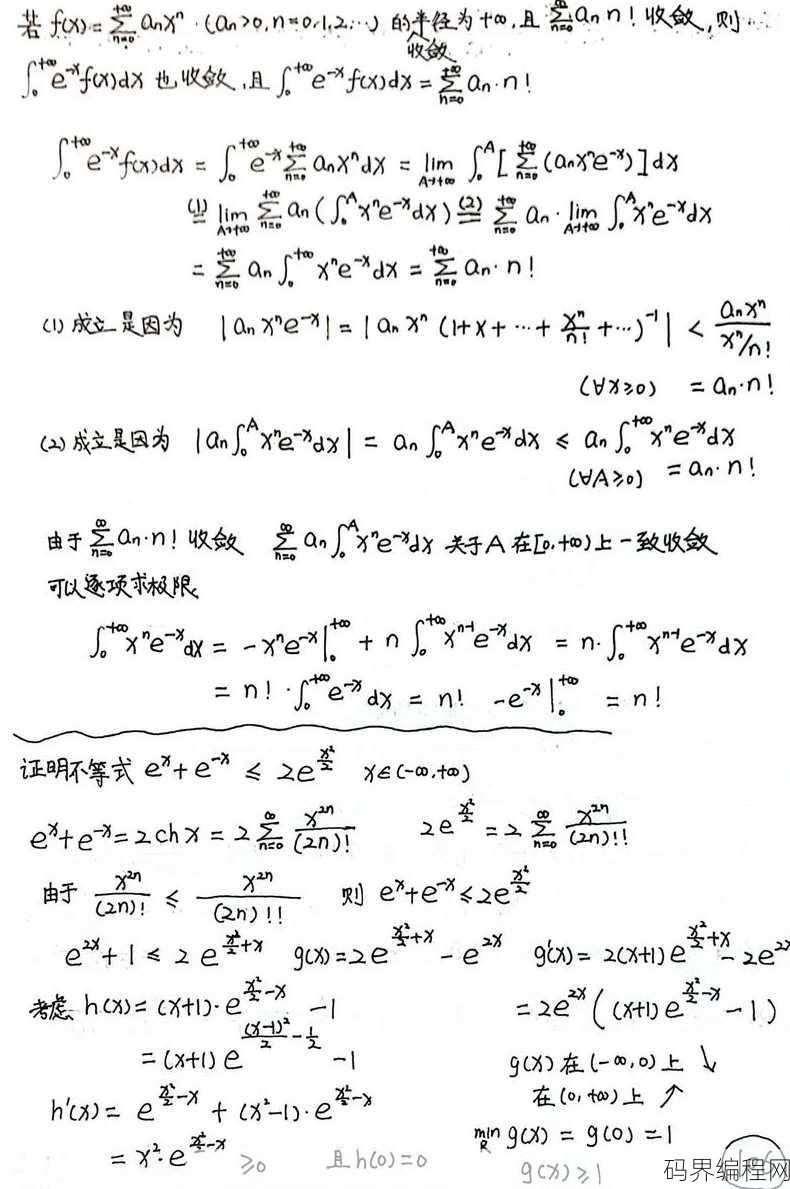 若 f(x) = ∑_{n=0}^{+∞} aₙxⁿ (aₙ>0, n=0,1,2,…) 的收敛半径为+∞, 且 ∑_{n=0}^{∞} aₙ n! 收敛, 则
∫₀^{+∞} e^{-x}f(x)dx 也收敛, 且 ∫₀^{+∞} e^{-x}f(x)dx = ∑_{n=0}^{+∞} aₙ·n!
∫₀^{+∞} e^{-x}f(x)dx = ∫₀^{+∞} e^{-x} ∑_{n=0}^{+∞} aₙxⁿ dx = lim_{A→+∞} ∫₀^A [∑_{n=0}^{+∞} (aₙxⁿe^{-x})] dx
(1)= lim_{A→+∞} ∑_{n=0}^{+∞} aₙ(∫₀^A xⁿe^{-x}dx) (2)= ∑_{n=0}^{+∞} aₙ·lim_{A→+∞} ∫₀^A xⁿe^{-x}dx
= ∑_{n=0}^{+∞} aₙ ∫₀^{+∞} xⁿe^{-x}dx = ∑_{n=0}^{+∞} aₙ·n!
(1) 成立是因为 |aₙxⁿe^{-x}| = |aₙxⁿ (1+x+⋯+xⁿ/n!+⋯)^{-1}| < aₙxⁿ/(xⁿ/n!)
(∀x≥0) = aₙ·n!
(2) 成立是因为 |aₙ∫₀^A xⁿe^{-x}dx| = aₙ∫₀^A xⁿe^{-x}dx ≤ aₙ∫₀^{+∞} xⁿe^{-x}dx
(∀A≥0) = aₙ·n!
由于 ∑_{n=0}^{∞} aₙ·n! 收敛 ∑_{n=0}^{∞} aₙ∫₀^A xⁿe^{-x}dx 关于A在[0,+∞)上一致收敛
可以逐项求极限
∫₀^{+∞} xⁿe^{-x}dx = -xⁿe^{-x}|₀^{+∞} + n∫₀^{+∞} x^{n-1}e^{-x}dx = n·∫₀^{+∞} x^{n-1}e^{-x}dx
= n!·∫₀^{+∞} e^{-x}dx = n! -e^{-x}|₀^{+∞} = n!
证明不等式 e^x+e^{-x} ≤ 2e^{x²/2} x∈(-∞,+∞)
e^x+e^{-x} = 2chx = 2∑_{n=0}^{∞} x^{2n}/(2n)! 2e^{x²/2} = 2∑_{n=0}^{∞} x^{2n}/(2n)!!
由于 x^{2n}/(2n)! ≤ x^{2n}/(2n)!! 则 e^x+e^{-x} ≤ 2e^{x²/2}
e^{2x}+1 ≤ 2e^{x²/2+x} g(x)=2e^{x²/2+x} - e^{2x} g'(x)= 2(x+1)e^{x²/2+x} - 2e^{2x}
考虑 h(x) = (x+1)·e^{x²/2-x} -1 = 2e^{2x}((x+1)e^{x²/2-x} -1)
= (x+1)e^{(x-1)²/2-1/2} -1 g(x) 在(-∞,0)上 ↘
在(0,+∞)上 ↗
h'(x) = e^{x²/2-x} + (x²-1)·e^{x²/2-x} min_R g(x) = g(0) = 1
= x²·e^{x²/2-x} ≥0 且h(0)=0 g(x)≥1
码界编程网